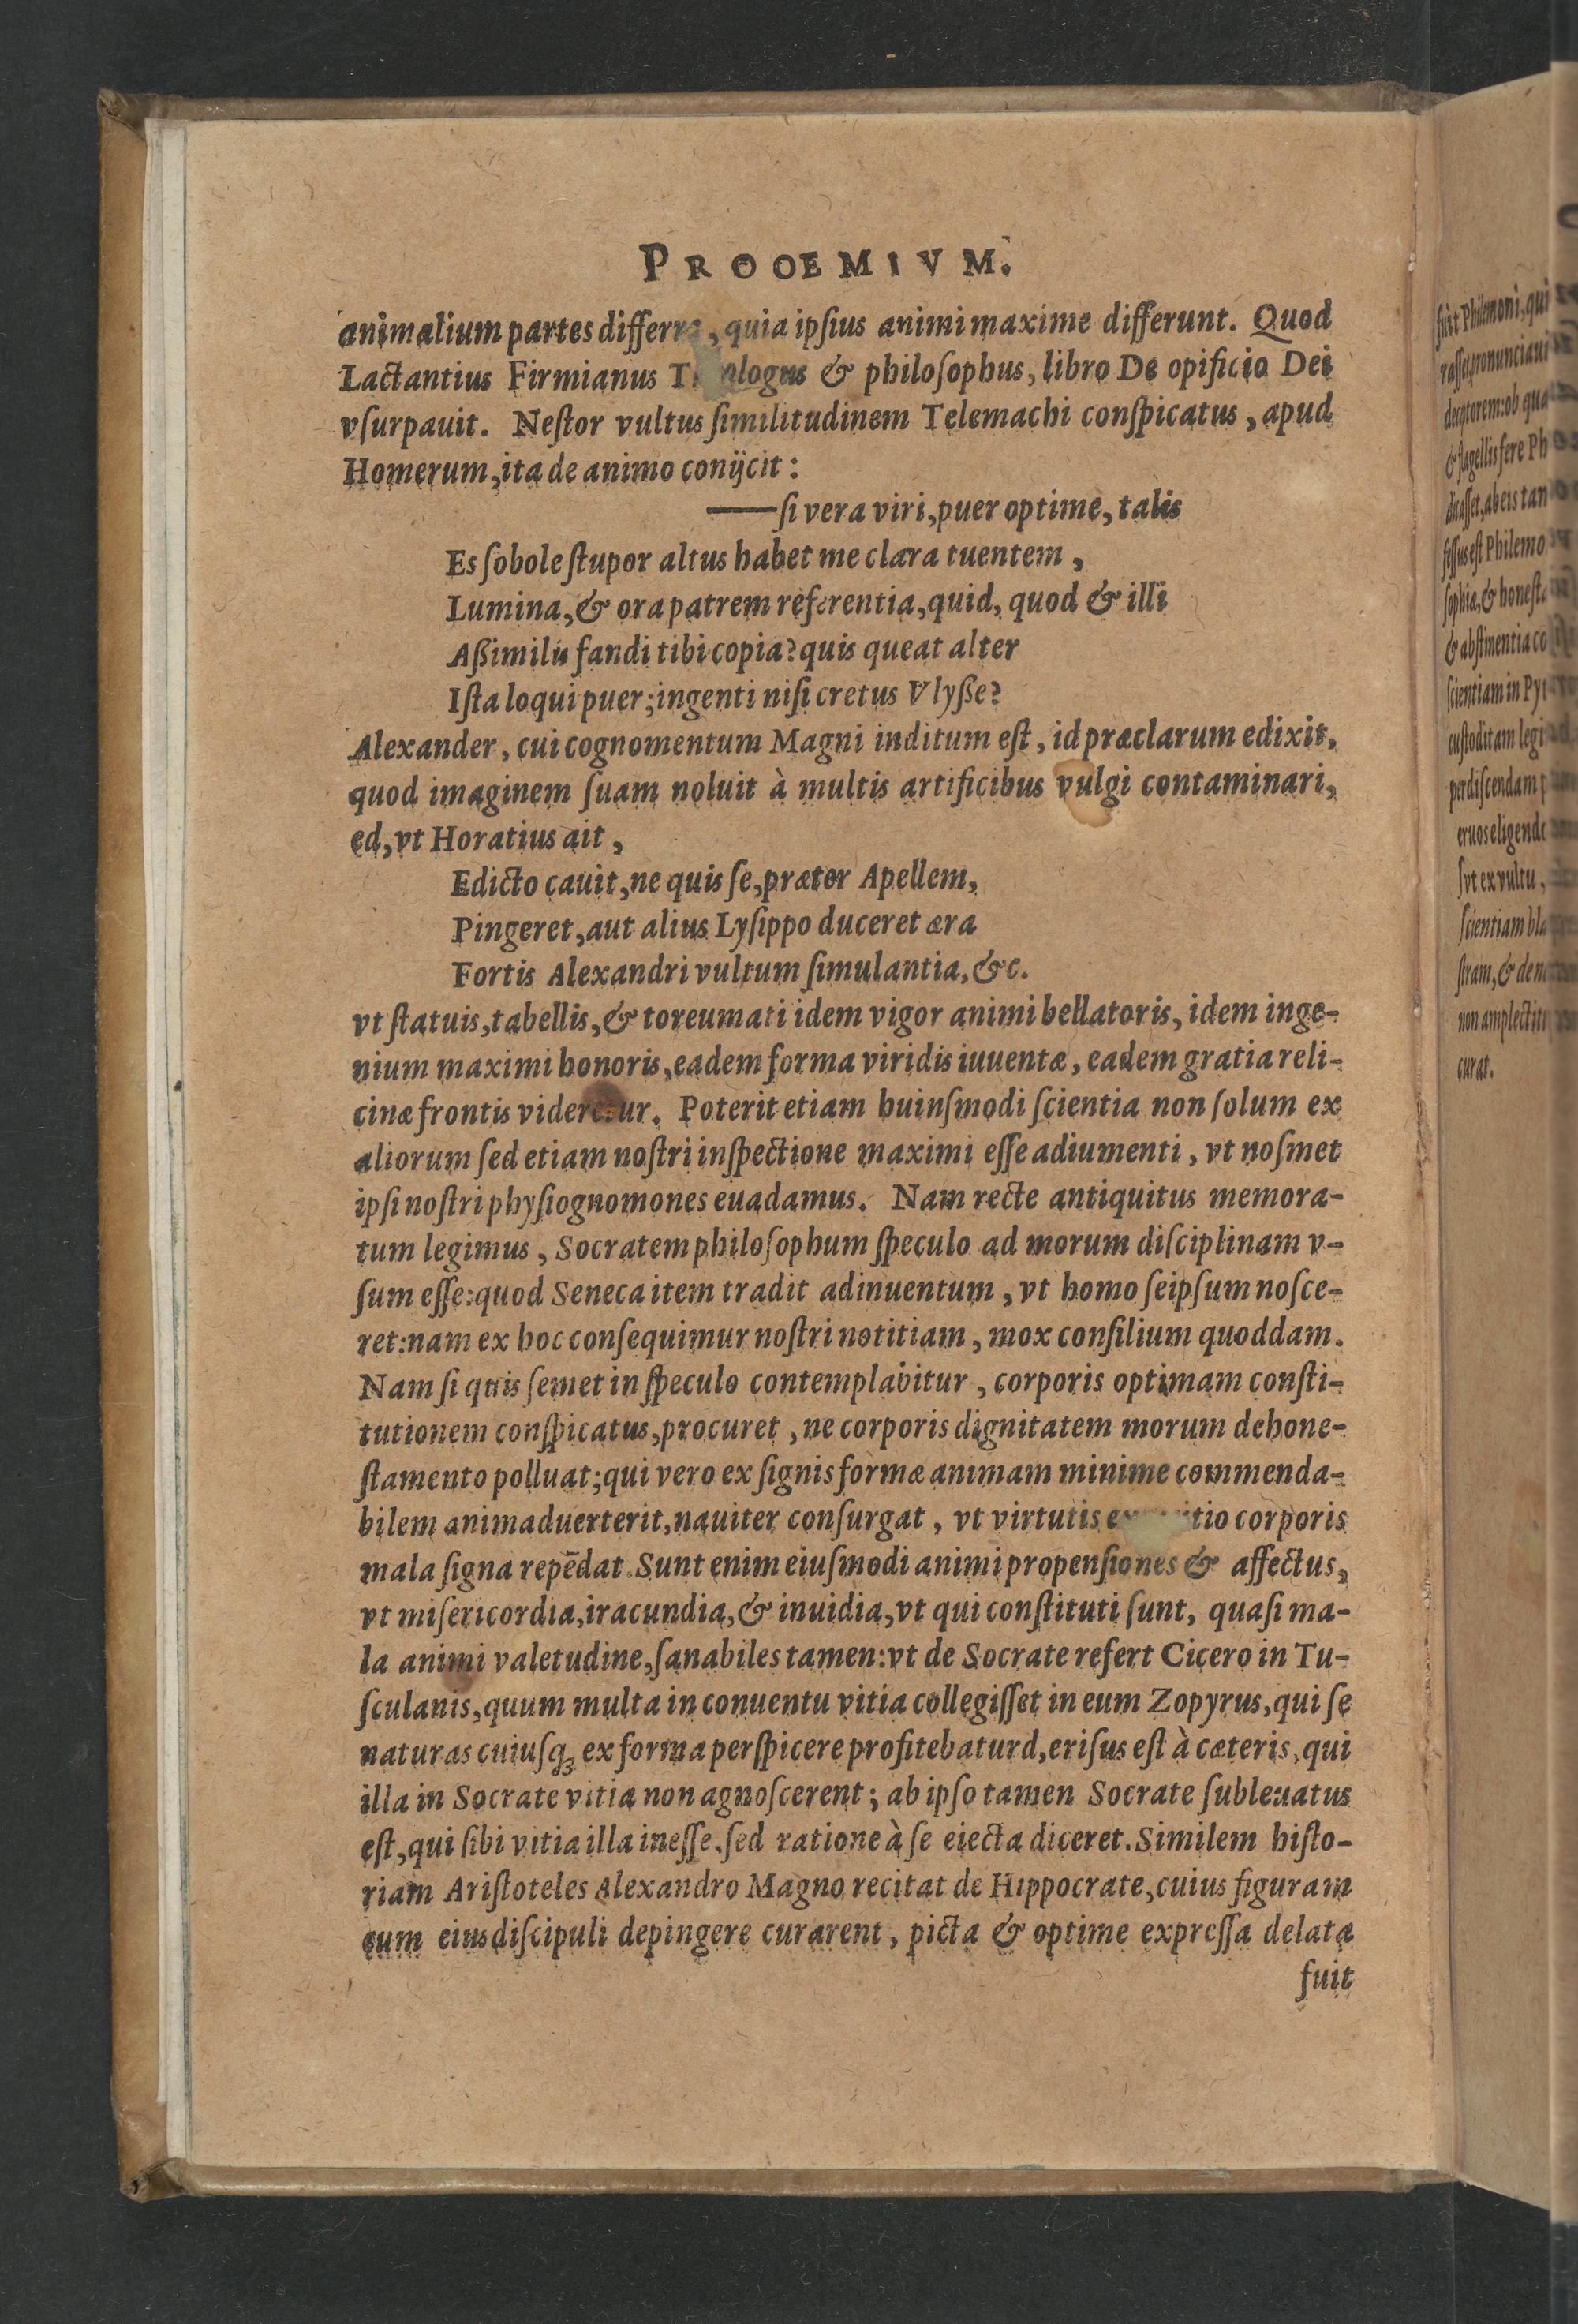 PROOEMIVM.
animalium partes differre, quia ipſius animi maxime differunt. Quod
Lactantius Firmianus & philoſophus, libro De opificio Dei
vſurpauit. Neſtor vultus ſimilitudinem Telemachi conſpicatus, apud
Homerum, ita de animo conijcit:
——ſi vera viri, puer optime, talis
Es ſobole ſtupor altus habet me clara tuentem,
Lumina, & ora patrem referentia, quid, quod & illi
Aßimilis fandi tibi copia? quis queat alter
Iſta loqui puer; ingenti niſi cretus Vlyße?
Alexander, cui cognomentum Magni inditum eſt, id præclarum edixit,
quod imaginem ſuam noluit à multis artificibus vulgi contaminari,
ed, vt Horatius ait,
Edicto cauit, ne quis ſe, præter Apellem,
Pingeret, aut alius Lyſippo duceret æra
Fortis Alexandri vultum ſimulantia, &c.
vt ſtatuis, tabellis, & toreumati idem vigor animi bellatoris, idem inge-
nium maximi honoris, eadem forma viridis iuuentæ, eadem gratia reli-
cinæ frontis videretur. Poterit etiam huinſmodi ſcientia non ſolum ex
aliorum ſed etiam noſtri inſpectione maximi eſſe adiumenti, vt noſmet
ipſi noſtri phyſiognomones euadamus. Nam recte antiquitus memora-
tum legimus, Socratem philoſophum ſpeculo ad morum diſciplinam v-
ſum eſſe: quod Seneca item tradit adinuentum, vt homo ſeipſum noſce-
ret: nam ex hoc conſequimur noſtri notitiam, mox conſilium quoddam.
Nam ſi quis ſemet in ſpeculo contemplabitur, corporis optimam conſti-
tutionem conſpicatus, procuret, ne corporis dignitatem morum dehone-
ſtamento polluat; qui vero ex ſignis formæ animam minime commenda-
bilem animaduerterit, nauiter conſurgat, vt virtutis corporis
mala ſigna repēdat. Sunt enim eiuſmodi animi propenſiones & affectus,
vt miſericordia, iracundia, & inuidia, vt qui conſtituti ſunt, quaſi ma-
la animi valetudine, ſanabiles tamen: vt de Socrate refert Cicero in Tu-
ſculanis, quum multa in conuentu vitia collegiſſet in eum Zopyrus, qui ſe
naturas cuiuſq; ex forma perſpicere profitebaturd, eriſus eſt à cæteris, qui
illa in Socrate vitia non agnoſcerent; ab ipſo tamen Socrate ſubleuatus
eſt, qui ſibi vitia illa ineſſe, ſed ratione à ſe eiecta diceret. Similem hiſto-
riam Ariſtoteles Alexandro Magno recitat de Hippocrate, cuius figuram
cum eius diſcipuli depingere curarent, picta & optime expreſſa delata
fuit
fuit Philemoni, qui
pronunciaui
decatorem: ob qua
& flagellis fere Ph
dicaſſet, ab eis tan
feſſus eſt Philemo
ſophia, & honeſta
& abſtinentia co
ſcientiam in Pyt
cuſtoditam legi
perdiſcendam p
eruos eligendo
ſvt ex vultu,
ſcientiam bla
ſtram, & den
non amplectitu
curat.